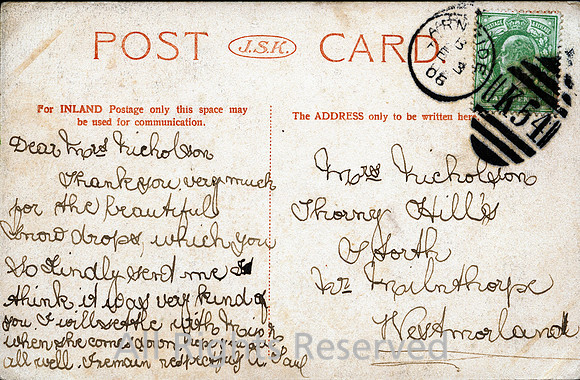 POST J.S.K. CARD
ARNSIDE
06
UK54
For INLAND Postage only this space may
be used for communication.
The ADDRESS only to be written here
Dear Mrs Nicholson
Thank you very much
for the beautiful
Snow drops, which you
So Kindly send me I
think it was very kind of
you. I will settle with
when she comes down
all well. I remain respectfully
Mrs Nicholson
Thorny Hills
Nr Milnthorpe
Westmorland
All Rights Reserved